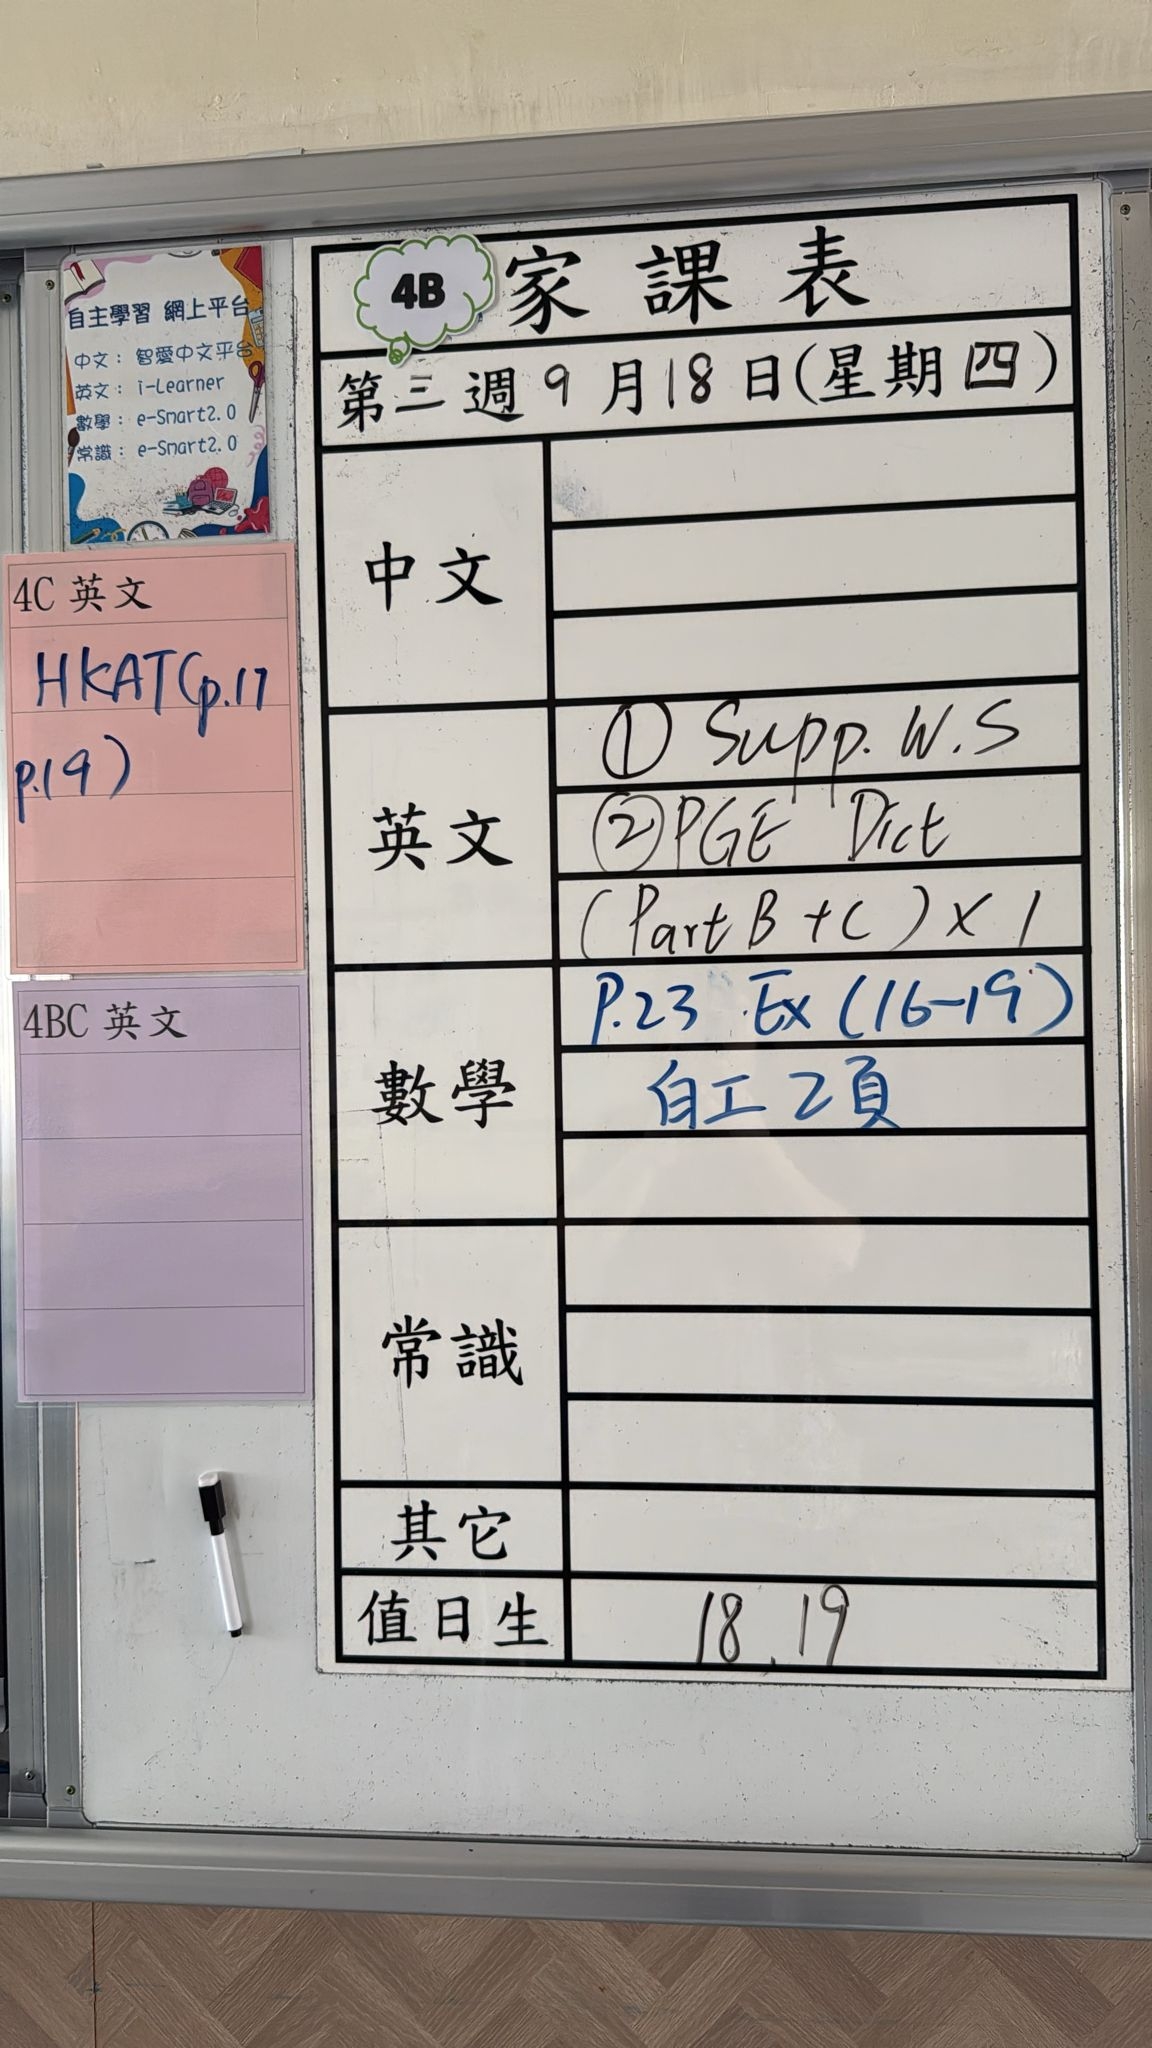 4B 家課表
第三週9月18日(星期四)
中文
英文
① Supp. W.S
② PGE Dict
(Part B + C) × 1
數學
P.23 Ex (16-19)
自工2頁
常識
其它
值日生
18.19
自主學習 網上平台
中文： 智愛中文平台
英文： i-Learner
數學： e-Smart2.0
常識： e-Smart2.0
4C 英文
HKAT(p.17
p.19)
4BC 英文